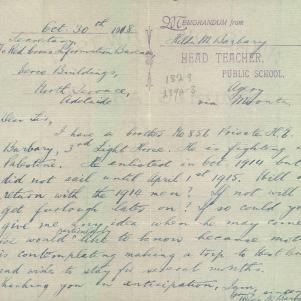 Oct. 30th 1918
MEMORANDUM from
Hilda M Barbary
HEAD TEACHER,
PUBLIC SCHOOL,
via Moonta
Secretary
Red Cross Information Bureau
Verco Buildings,
North Terrace,
Adelaide
Dear Sir,
I have a brother No 856 Private H. E.
Barbary, 3rd Light Horse. He is fighting in
Palestine. He enlisted in Oct. 1914 but
did not sail until April 1st 1915. Will he
return with the 1914 men? If not will he
get furlough later on? If so could you
give me any idea when he may come
We would particularly like to know because mother
is contemplating making a trip to West
and wishes to stay for several months.
Thanking you in anticipation,